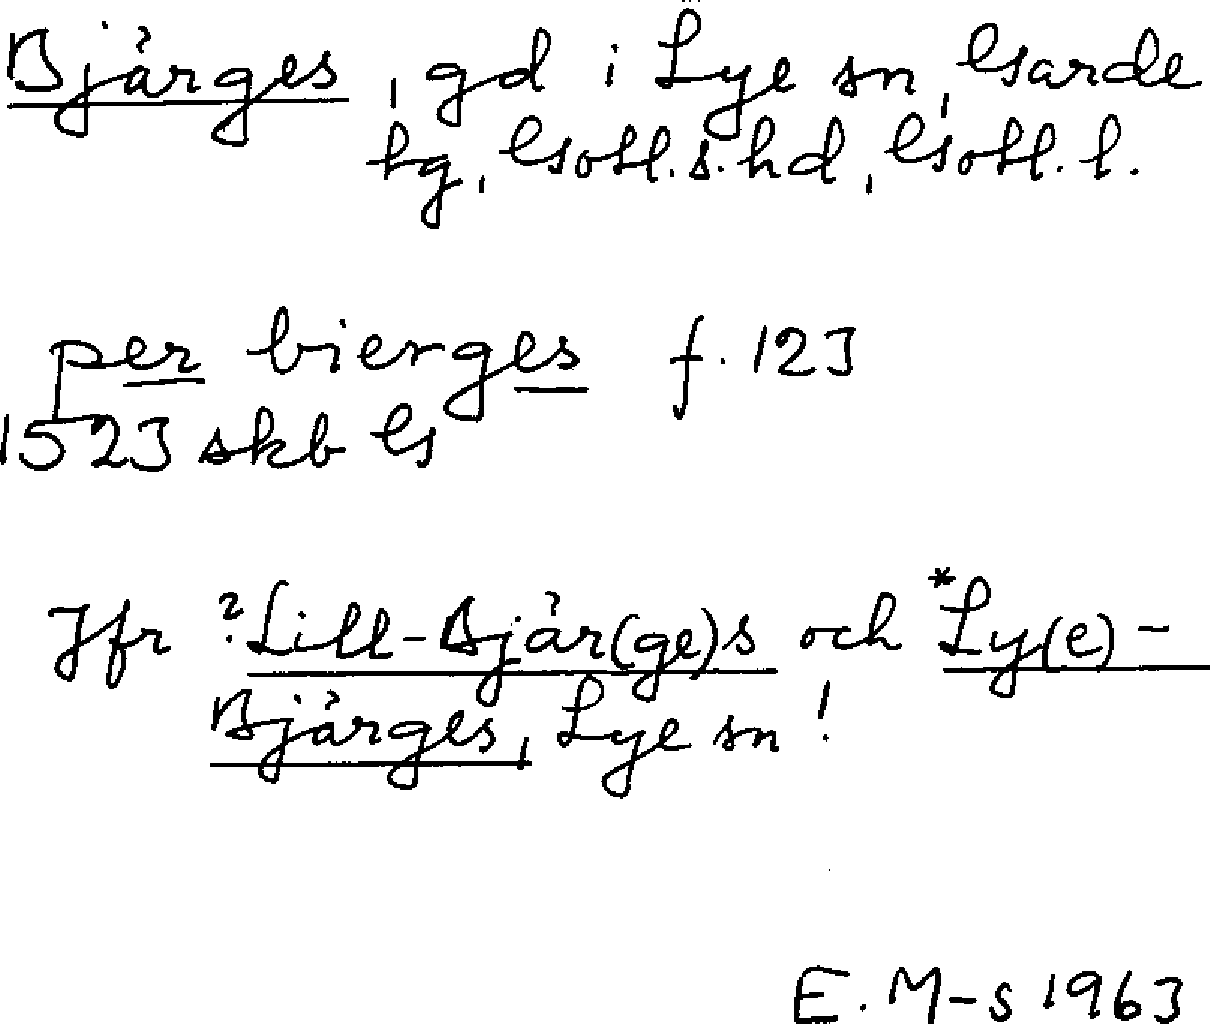 Bjärges, gd i Lye sn, Garde
tg, Gotl.s.hd, Gotl.l.
per bierges f. 123
1523 skb G
Jfr ?Lill-Bjär(ge)s och *Ly(e)-
Bjärges, Lye sn!
E. M-s 1963